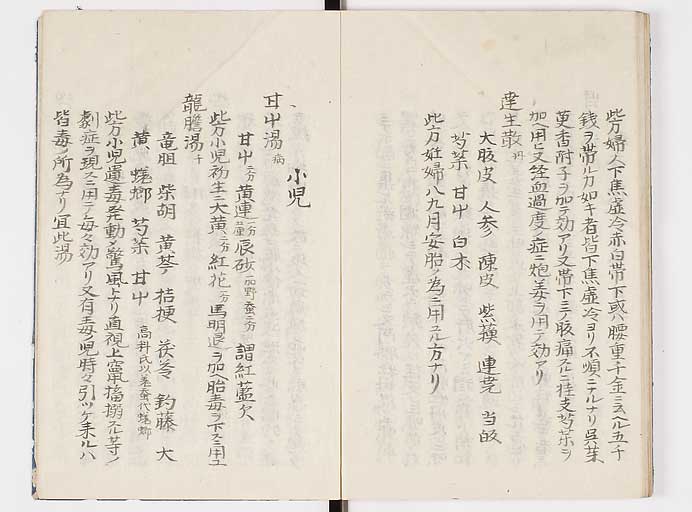 此方婦人下焦虚冷赤白帯下或ハ腰重千金ニ云ヘル五千
銭ヲ帯ルカ如キ者皆下焦虚冷ヨリ不順ニナルナリ呉茱
萸香附子ヲ加テ効アリ又帯下ニテ腹痛スルニ桂支芍薬ヲ
加ヘ用ヒ又経血過度ノ症ニ炮姜ヲ用テ効アリ
達生散 丹
大腹皮 人参 陳皮 紫蘓 連堯 当皈
芍薬 甘中 白木
此方妊婦八九月安胎ノ為ニ用ユル方ナリ
小児
甘中湯 病
甘中 黄連 辰砂 謂紅藍欠
此方小児初生ニ大黄 紅花 馬明退ヲ加ヘ胎毒ヲ下スニ用ユ
龍膽湯 千
竜胆 柴胡 黄芩 桔梗 茯苓 釣藤 大
黄 蜣蜋 芍薬 甘中 高料氏以姜蚕代蜣蜋
此方小児遺毒発動ノ驚風ヨリ直視上竄搐搦スル等ノ
劇症ヲ現スニ用テ毎々効アリ又有毒ノ児時々引ツケ来ルハ
皆毒ノ所為ナリ宜此湯